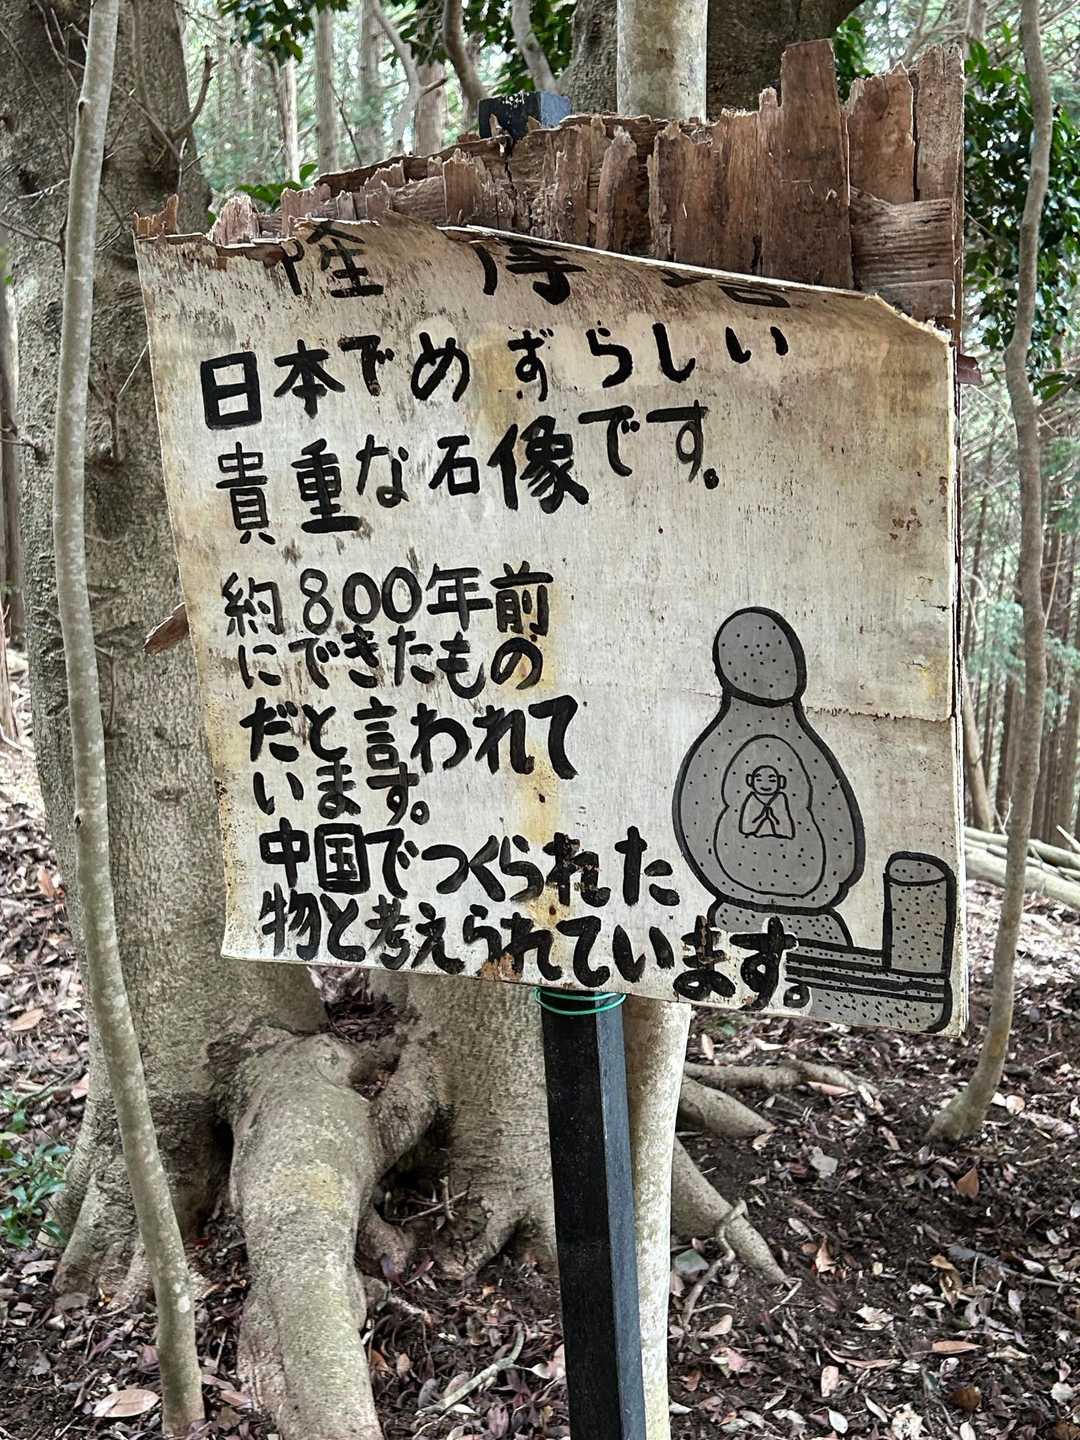 日本でめずらしい
貴重な石像です。
約800年前
にできたもの
だと言われて
います。
中国でつくられた
物と考えられています。